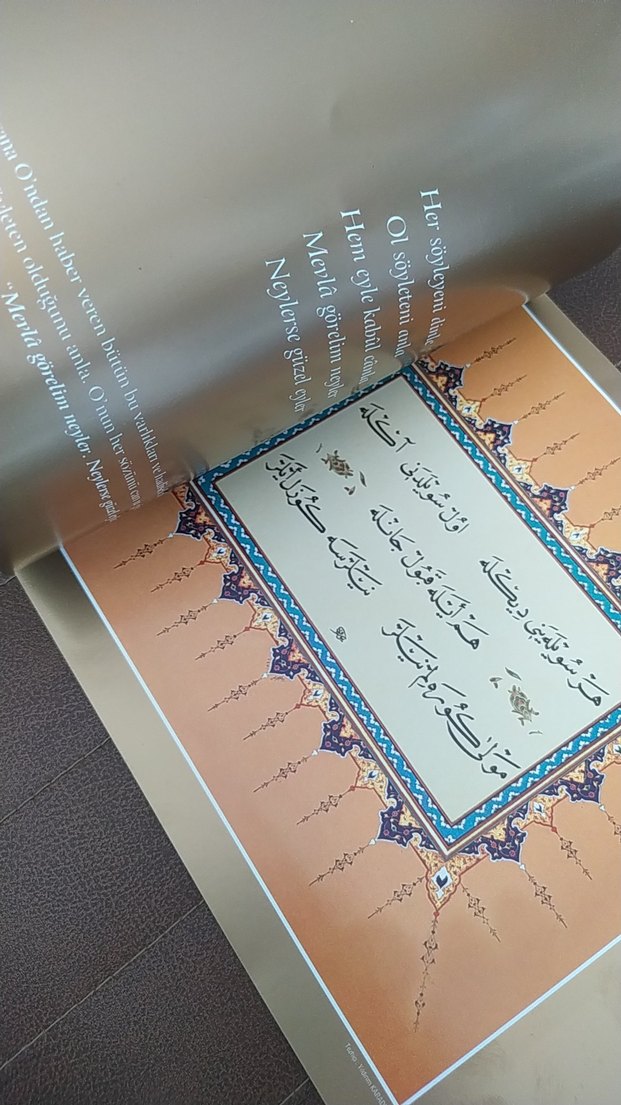 Her söyleyeni
Ol söyleteni
Hem eyle kabûl
Mevlâ görelim neyler
Neylerse güzel eyler
O'ndan haber veren bütün bu varlıkları ve
olduğunu anla. O'nun her sözünü
"Mevlâ görelim neyler, Neylerse güzel
هر سويليەنى ديكله اول سويلدنى آكله
هم ايله قبول جانله
مولى كوره لم نيلر نيلرسه كوزل ايلر
Yıldırım